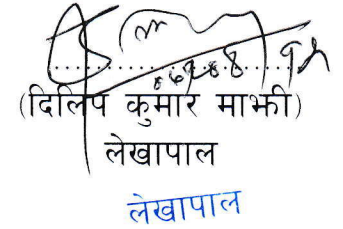 (दिलिप कुमार माझी)
लेखापाल
लेखापाल